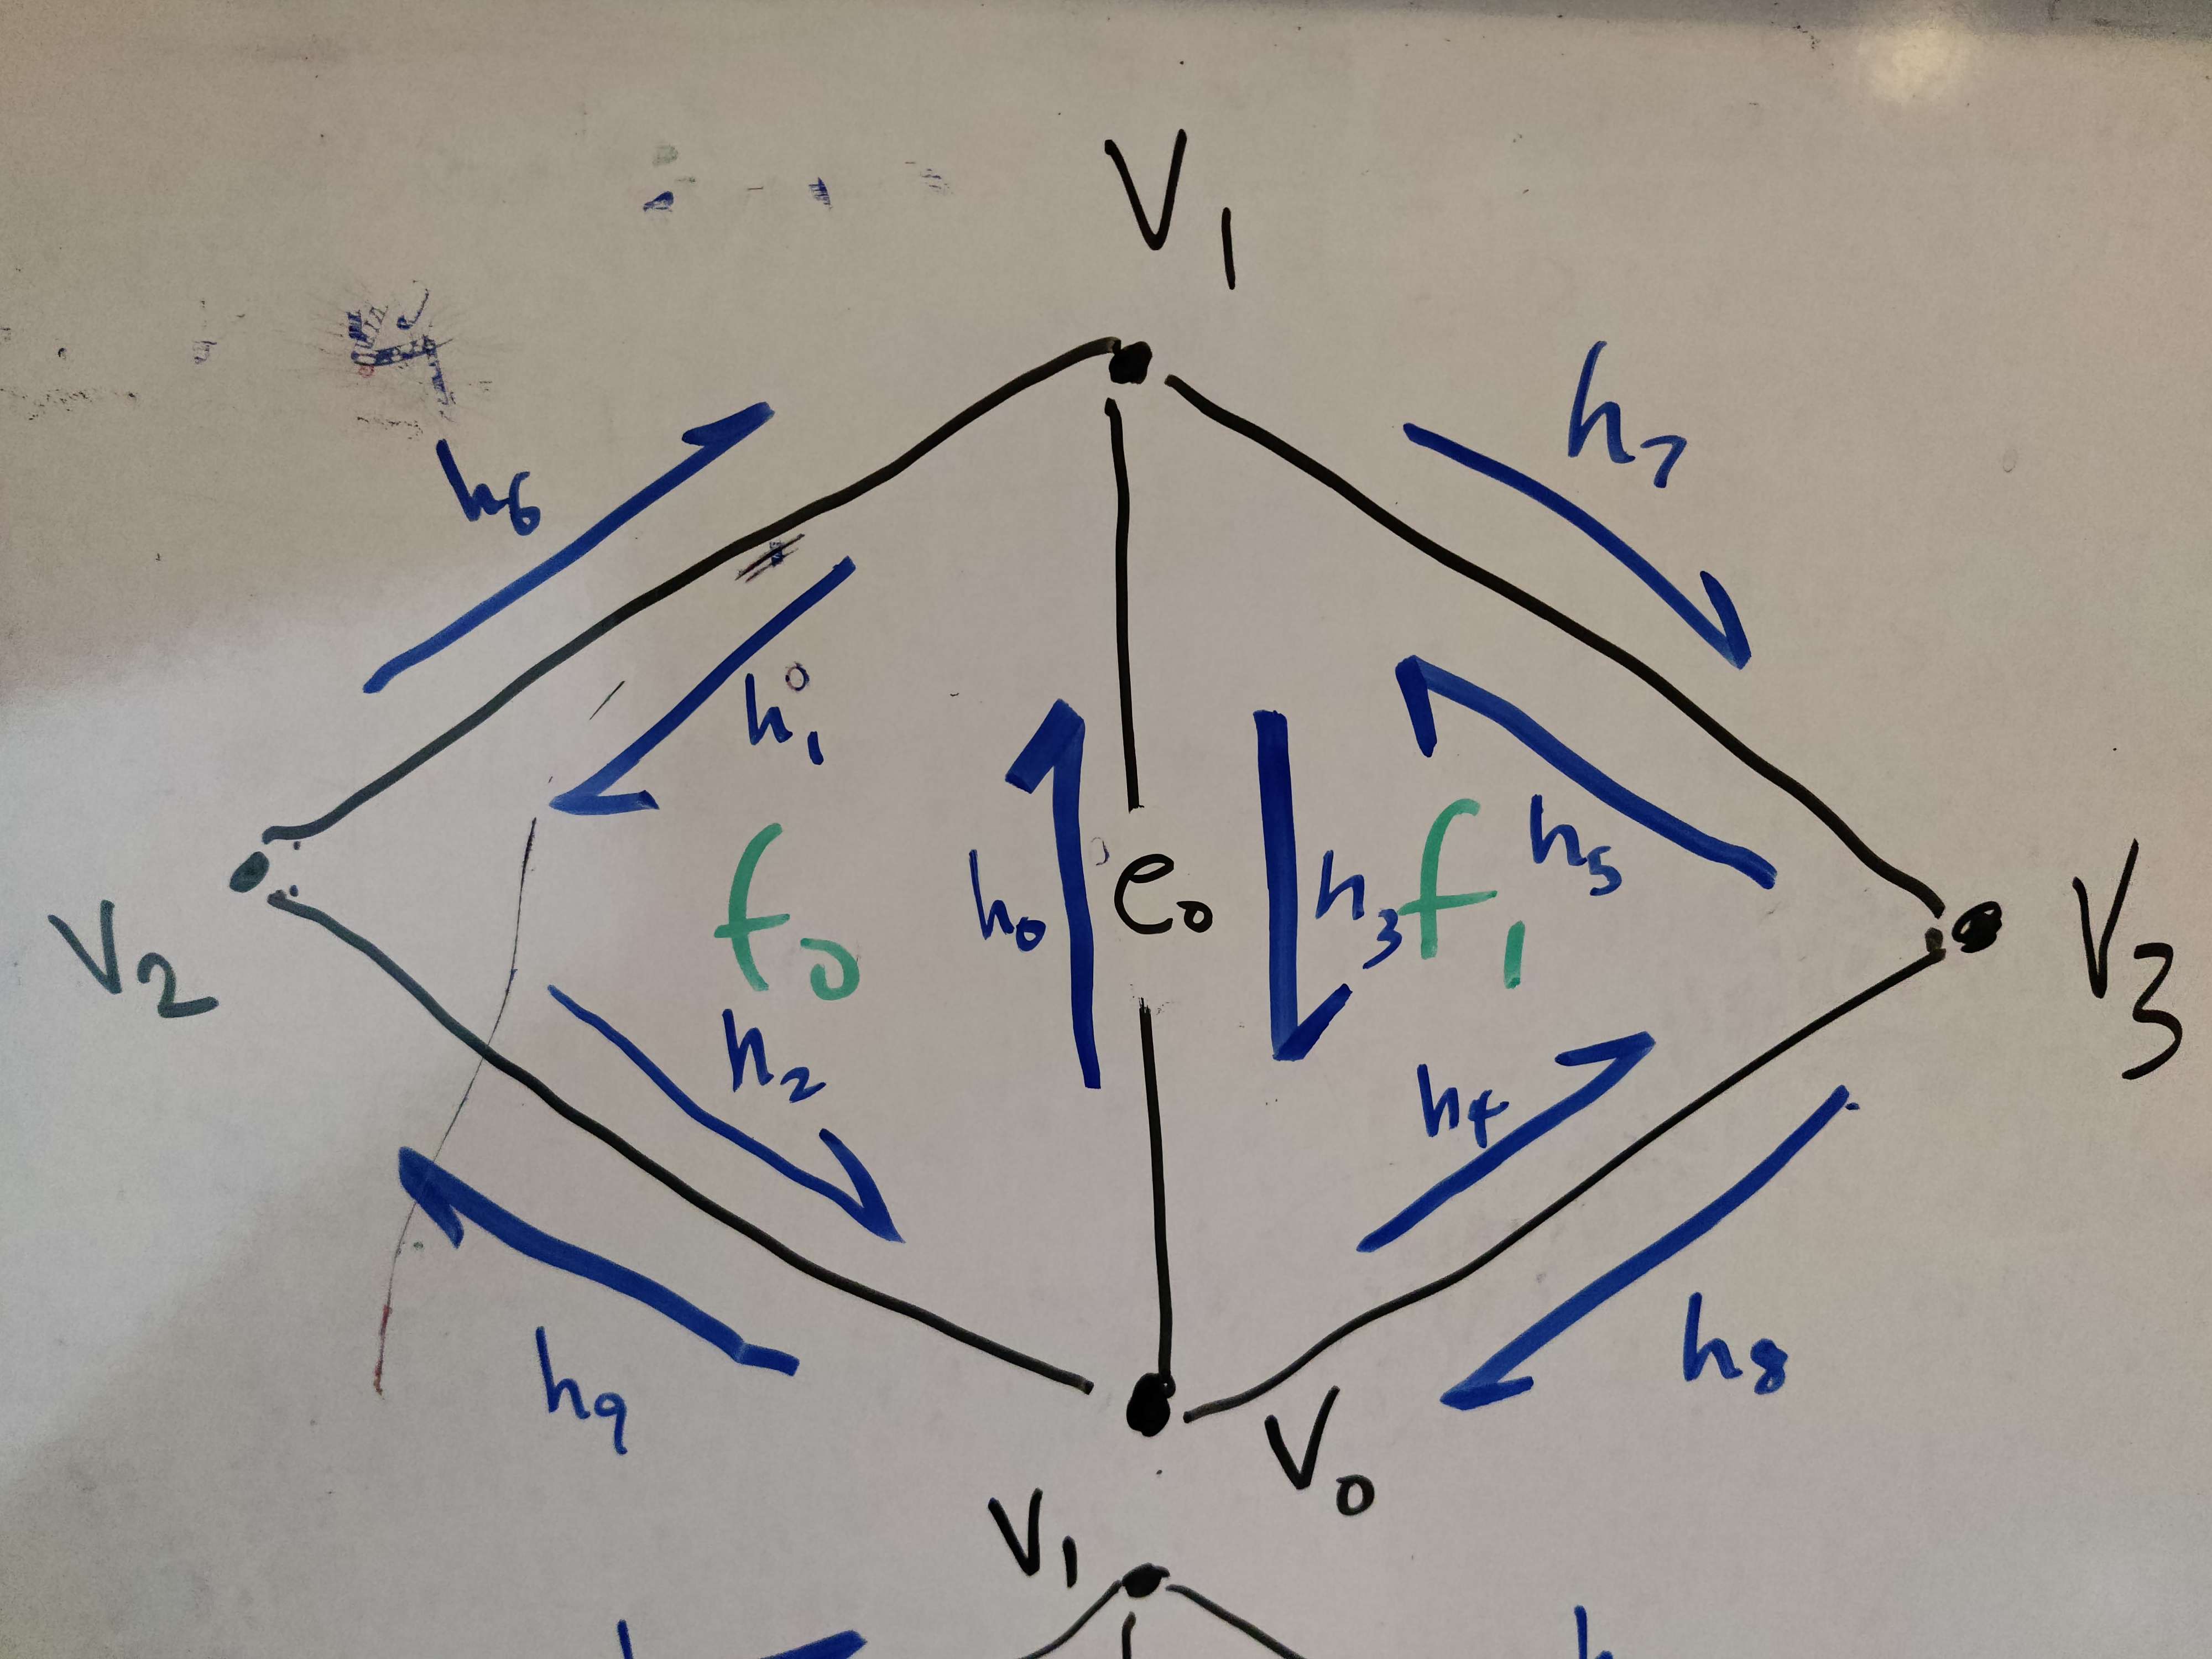 V1
h7
h6
h1
f0
h0
e0
h3
f1
h5
V2
V3
h2
h4
h9
h8
V0
V1